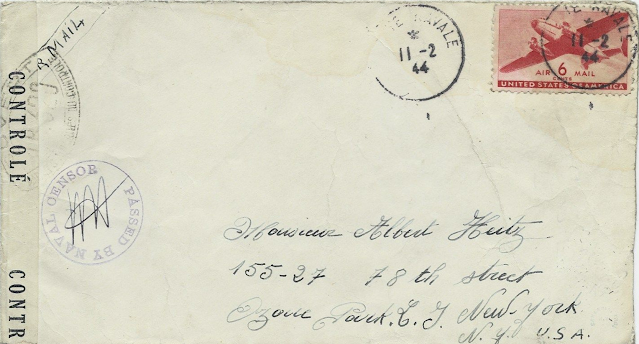 R MAIL
CONTROLÉ
CONTR
PASSED BY NAVAL CENSOR
NAVALE
*
11-2
44
NAVALE
*
11-2
44
6
CENTS
AIR MAIL
UNITED STATES OF AMERICA
Monsieur Albert Heitz
155-27 78 th street
Ozone Park. L. I. New-York
N.Y. U.S.A.